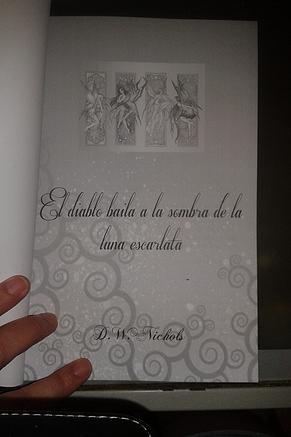 El diablo baila a la sombra de la
luna escarlata
D. W. Nichols